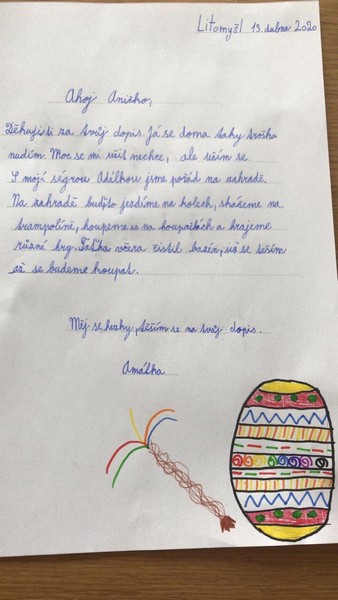 Litomyšl 13. dubna 2020
Ahoj Aničko,
Děkuji ti za tvůj dopis. Já se doma taky trošku
nudím. Moc se mi učit nechce, ale učím se.
S mojí ségrou Adélkou jsme pořád na zahradě.
Na zahradě buďto jezdíme na kolech, skáčeme na
trampolíně, houpeme se na houpačkách a hrajeme
různé hry. Taťka včera čistil bazén, už se těším
až se budeme koupat.
Měj se hezky, těším se na tvůj dopis.
Amálka